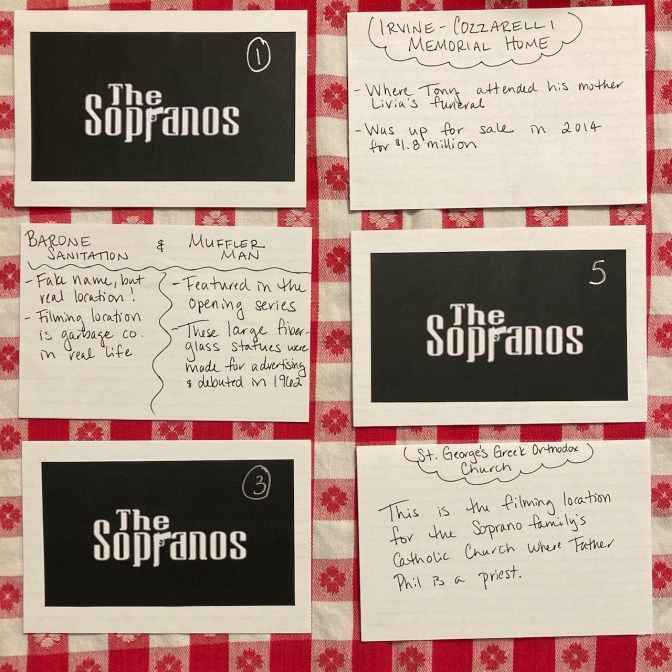 1
The
Sopranos
IRVINE-COZZARELLI
MEMORIAL HOME
- Where Tony attended his mother
Livia's funeral
- Was up for sale in 2014
for $1.8 million
BARONE
SANITATION
& MUFFLER
MAN
- Fake name, but
real location!
- Filming location
is garbage co.
in real life
- Featured in the
opening series
- These large fiber-
glass statues were
made for advertising
& debuted in 1962
5
The
Sopranos
3
The
Sopranos
St. George's Greek Orthodox
Church
This is the filming location
for the Soprano family's
Catholic Church where Father
Phil is a priest.